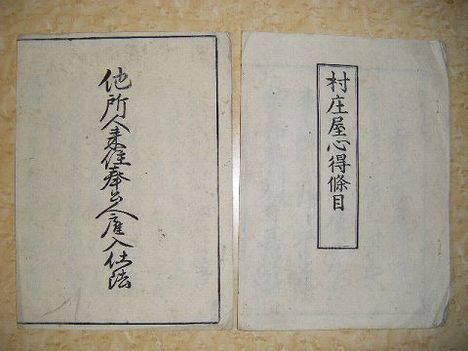 村庄屋心得條目
他所人来住奉公人雇入仕法